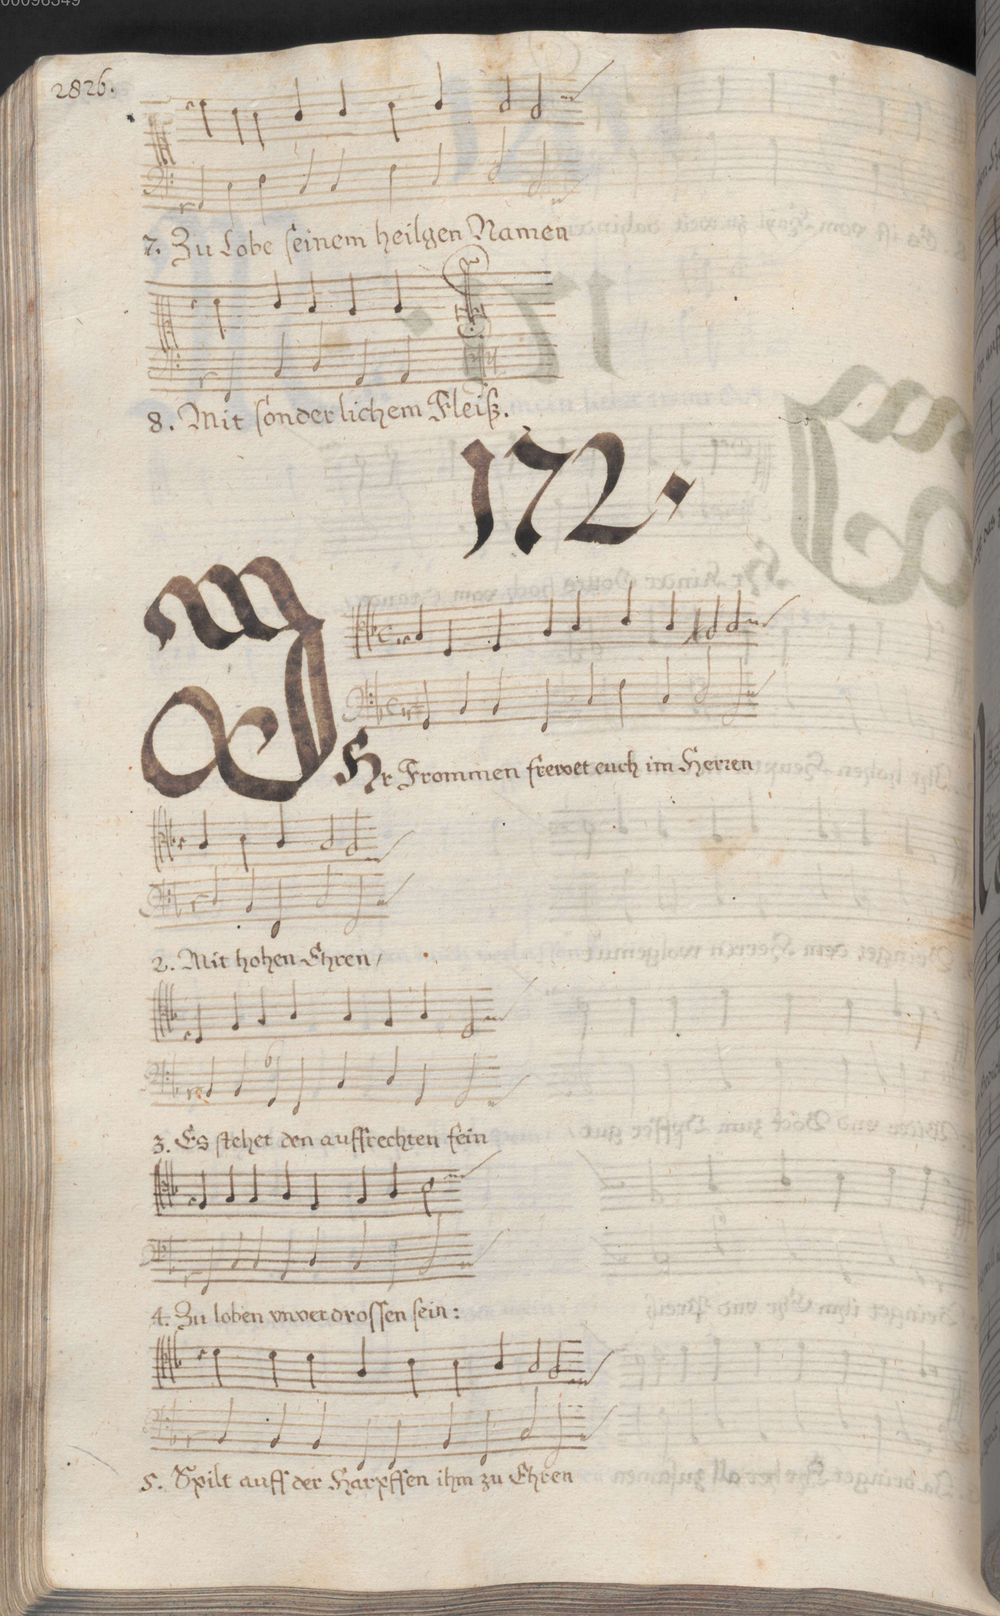 00096349
2826.
7. Zu Lobe seinem heilgen Namen
8. Mit sonderlichem Fleiß.
172.
IHr Frommen frewet euch im Herren
2. Mit hohen Ehren/
3. Es stehet den auffrechten fein
4. Zu loben vnverdrossen sein:
5. Spilt auff der Harpffen ihm zu Ehren